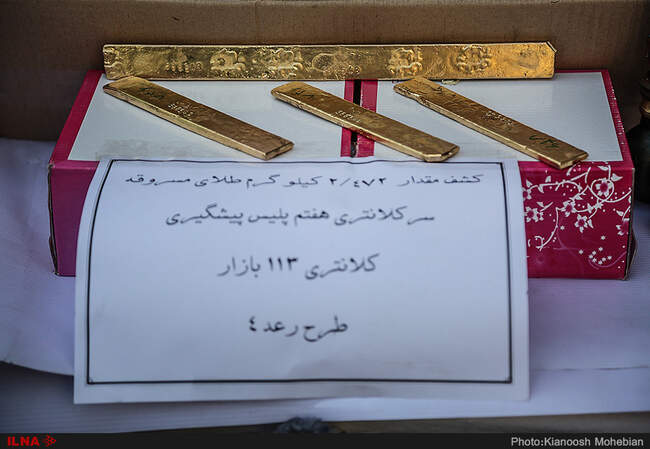 کشف مقدار ۲/۴۷۲ کیلو گرم طلای مسروقه
سرکلانتری هفتم پلیس پیشگیری
کلانتری ۱۱۳ بازار
طرح رعد ٤
ILNA
Photo:Kianoosh Mohebian